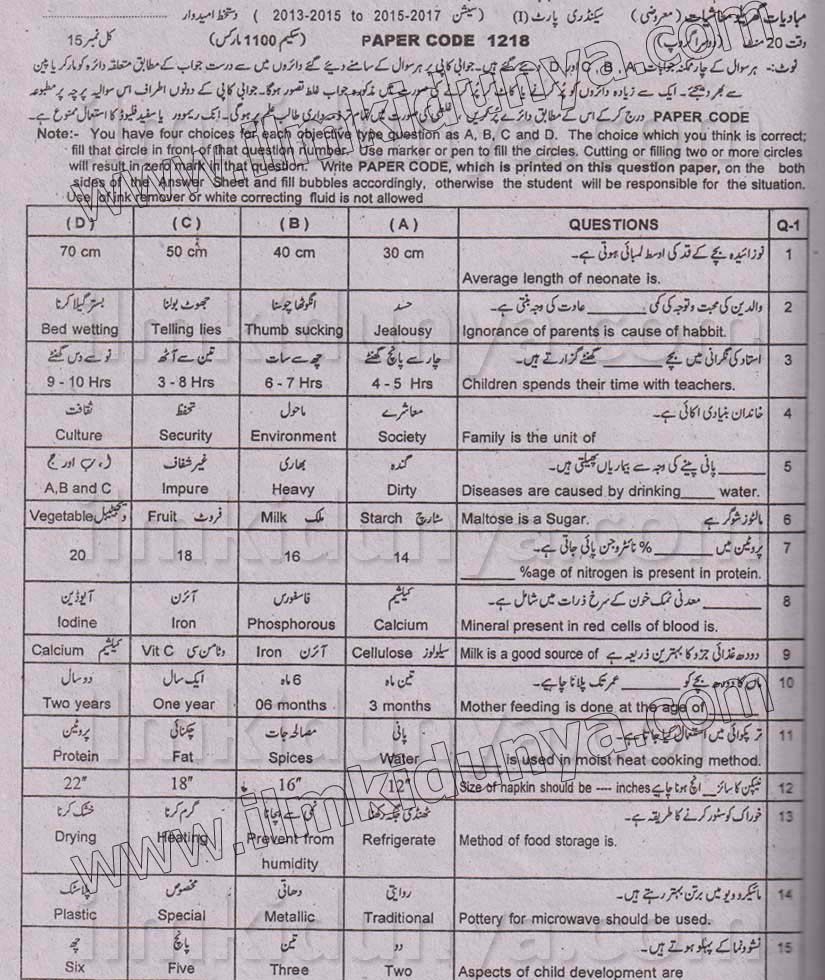 مبادیات گھریلو معاشیات (معروضی) سیکنڈری پارٹ (I) (سیشن 2013-2015 to 2015-2017) دستخط امیدوار
وقت 20 منٹ (دوسرا گروپ) PAPER CODE 1218 (سکیم 1100 مارکس) کل نمبر 15
نوٹ:- ہر سوال کے چار ممکنہ جوابات A, B, C اور D دیئے گئے ہیں۔ جوابی کاپی پر ہر سوال کے سامنے دیئے گئے دائروں میں سے درست جواب کے مطابق متعلقہ دائرہ کو مارکر یا پین
سے بھر دیجئے۔ ایک سے زیادہ دائروں کو پُر کرنے یا کاٹ کر پُر کرنے کی صورت میں مذکورہ جواب غلط تصور ہوگا۔ جوابی کاپی کے دونوں اطراف اس سوالیہ پرچہ پر مطبوعہ
PAPER CODE درج کر کے اس کے مطابق دائرے پُر کریں، غلطی کی صورت میں تمام تر ذمہ داری طالب علم پر ہوگی۔ انک ریموور یا سفید فلیوڈ کا استعمال ممنوع ہے۔
Note:- You have four choices for each objective type question as A, B, C and D. The choice which you think is correct;
fill that circle in front of that question number. Use marker or pen to fill the circles. Cutting or filling two or more circles
will result in zero mark in that question. Write PAPER CODE, which is printed on this question paper, on the both
sides of the Answer Sheet and fill bubbles accordingly, otherwise the student will be responsible for the situation.
Use of ink remover or white correcting fluid is not allowed
(D) (C) (B) (A) QUESTIONS Q-1
نوزائیدہ بچے کے قد کی اوسط لمبائی ہوتی ہے۔
70 cm 50 cm 40 cm 30 cm 1
Average length of neonate is.
بستر گیلا کرنا جھوٹ بولنا انگوٹھا چوسنا حسد والدین کی محبت و توجہ کی کمی ______ عادت کی وجہ بنتی ہے۔ 2
Bed wetting Telling lies Thumb sucking Jealousy Ignorance of parents is cause of habbit.
نو سے دس گھنٹے تین سے آٹھ چھ سے سات چار سے پانچ گھنٹے استاد کی نگرانی میں بچے ______ گھنٹے گزارتے ہیں۔ 3
9 - 10 Hrs 3 - 8 Hrs 6 - 7 Hrs 4 - 5 Hrs Children spends their time with teachers.
ثقافت تحفظ ماحول معاشرے خاندان بنیادی اکائی ہے۔ 4
Culture Security Environment Society Family is the unit of
ا، ب اور ج غیر شفاف بھاری گندہ ______ پانی پینے کی وجہ سے بیماریاں پھیلتی ہیں۔ 5
A,B and C Impure Heavy Dirty Diseases are caused by drinking____ water.
Vegetable ویجیٹیبل Fruit فروٹ Milk ملک Starch سٹارچ Maltose is a Sugar. مالٹوز شوگر ہے 6
پروٹین میں ______ % نائٹروجن پائی جاتی ہے۔ 7
20 18 16 14
______ %age of nitrogen is present in protein.
آیوڈین آئرن فاسفورس کیلشیم ______ معدنی نمک خون کے سرخ ذرات میں شامل ہے۔ 8
Iodine Iron Phosphorous Calcium Mineral present in red cells of blood is.
Calcium کیلشیم Vit C وٹامن سی Iron آئرن Cellulose سیلولوز Milk is a good source of دودھ غذائی جزو کا بہترین ذریعہ ہے 9
دو سال ایک سال 6 ماہ تین ماہ ماں کا دودھ بچے کو ______ عمر تک پلانا چاہیے۔ 10
Two years One year 06 months 3 months Mother feeding is done at the age of ____
پروٹین چکنائی مصالحہ جات پانی تر پکوائی میں استعمال کیا جاتا ہے۔ 11
Protein Fat Spices Water ____ is used in moist heat cooking method.
22" 18" 16" 12" Size of napkin should be ---- inches نیپکن کا سائز __ انچ ہونا چاہیے 12
خشک کرنا گرم کرنا نمی سے بچانا ٹھنڈی جگہ رکھنا خوراک کو سٹور کرنے کا طریقہ ہے۔ 13
Drying Heating Prevent from Refrigerate Method of food storage is.
humidity
پلاسٹک مخصوص دھاتی روایتی مائیکروویو میں برتن بہتر رہتے ہیں۔ 14
Plastic Special Metallic Traditional Pottery for microwave should be used.
چھ پانچ تین دو نشوونما کے پہلو ہوتے ہیں۔ 15
Six Five Three Two Aspects of child development are
www.ilmkidunya.com
www.ilmkidunya.com
ilmkidunya.com
ilmkidunya.com
ilmkidunya.com